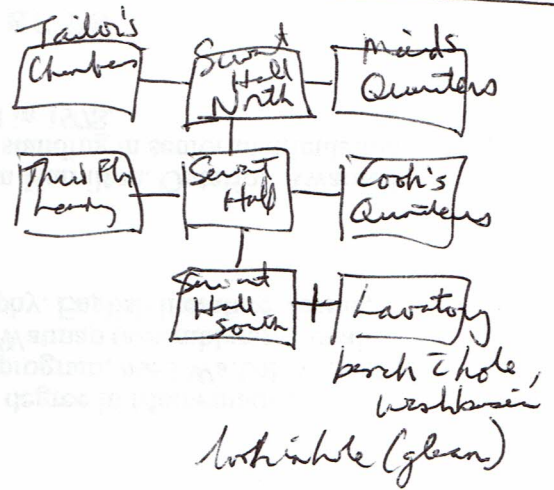 Tailor's
Chamber
Servant
Hall
North
Maids
Quarters
Servant
Hall
Cook's
Quarters
Servant
Hall
South
Lavatory
hole,
washbasin
look in hole (gleam)